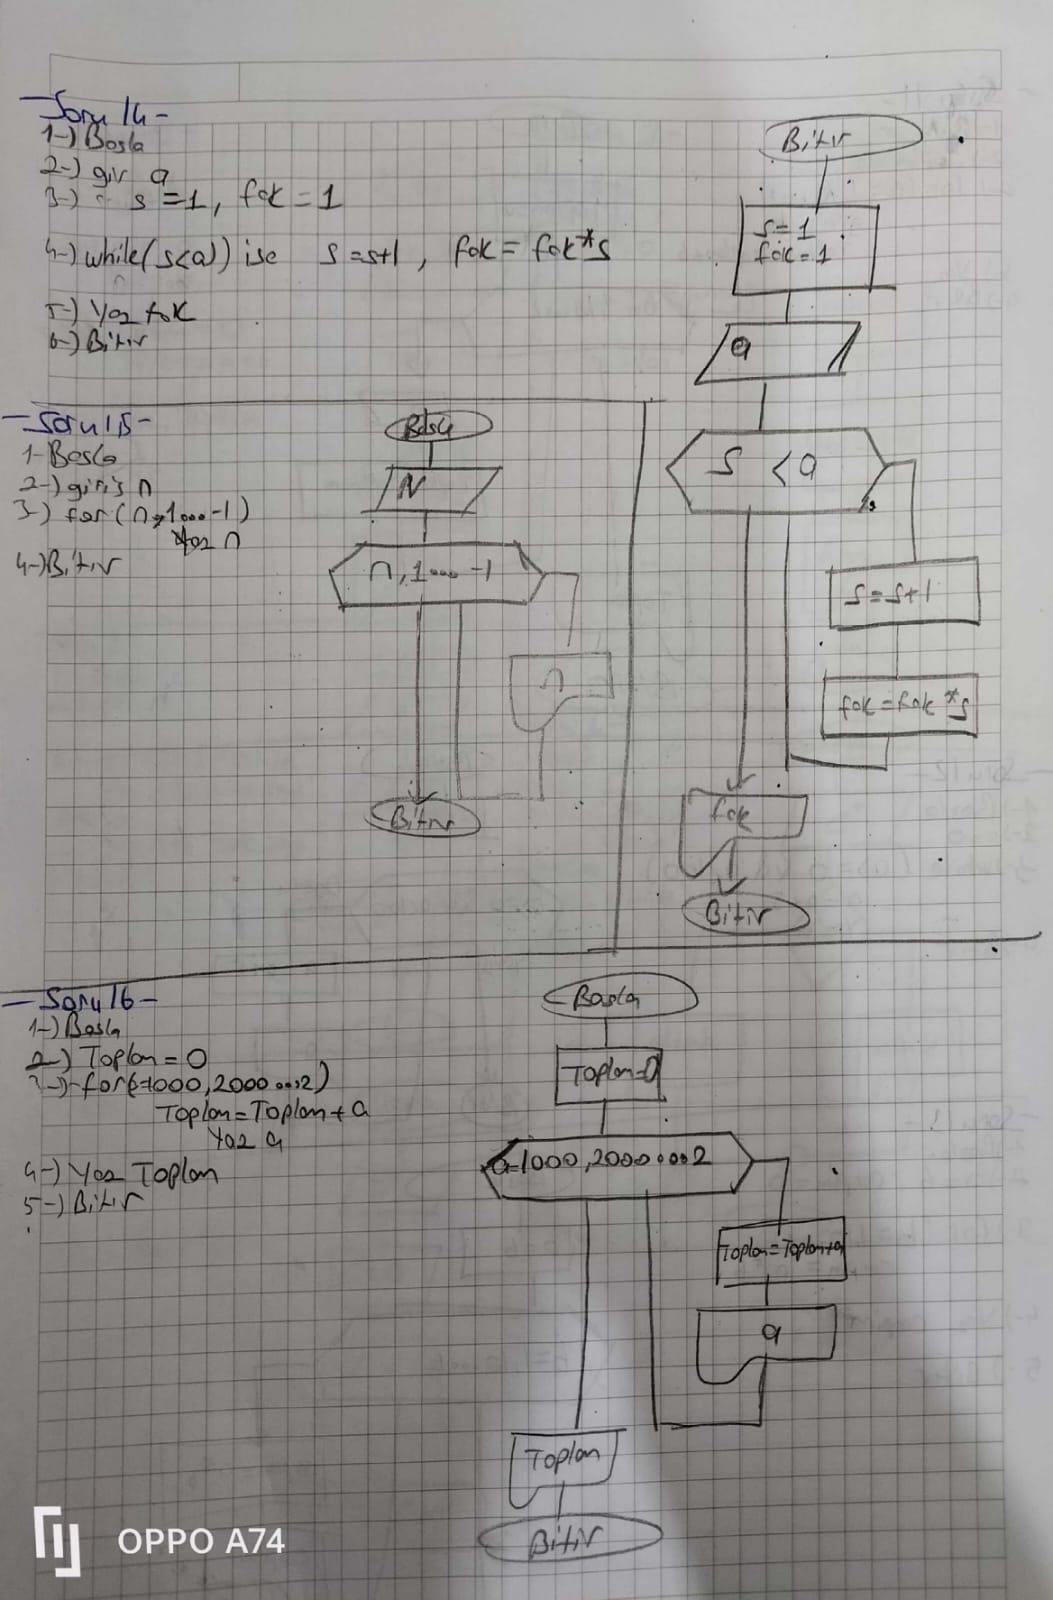 -Soru 14-
1-) Başla
2-) gir a
3-) s=1, fak=1
4-) while(s<a)) ise s=s+1, fak=fak*s
5-) Yaz fak
6-) Bitir
Bitir
s=1
fak=1
a
s < a
s=s+1
fak=fak*s
fak
Bitir
-Soru 15-
1-Başla
2-) giriş n
3-) for(n,1...-1)
Yaz n
4-) Bitir
Başla
N
n,1...-1
n
Bitir
-Soru 16-
1-) Başla
2-) Toplam=0
3-) for(=1000,2000...2)
Toplam=Toplam+a
Yaz a
4-) Yaz Toplam
5-) Bitir
Başla
Toplam=0
a=1000,2000...2
Toplam=Toplam+a
a
Toplam
Bitir
OPPO A74